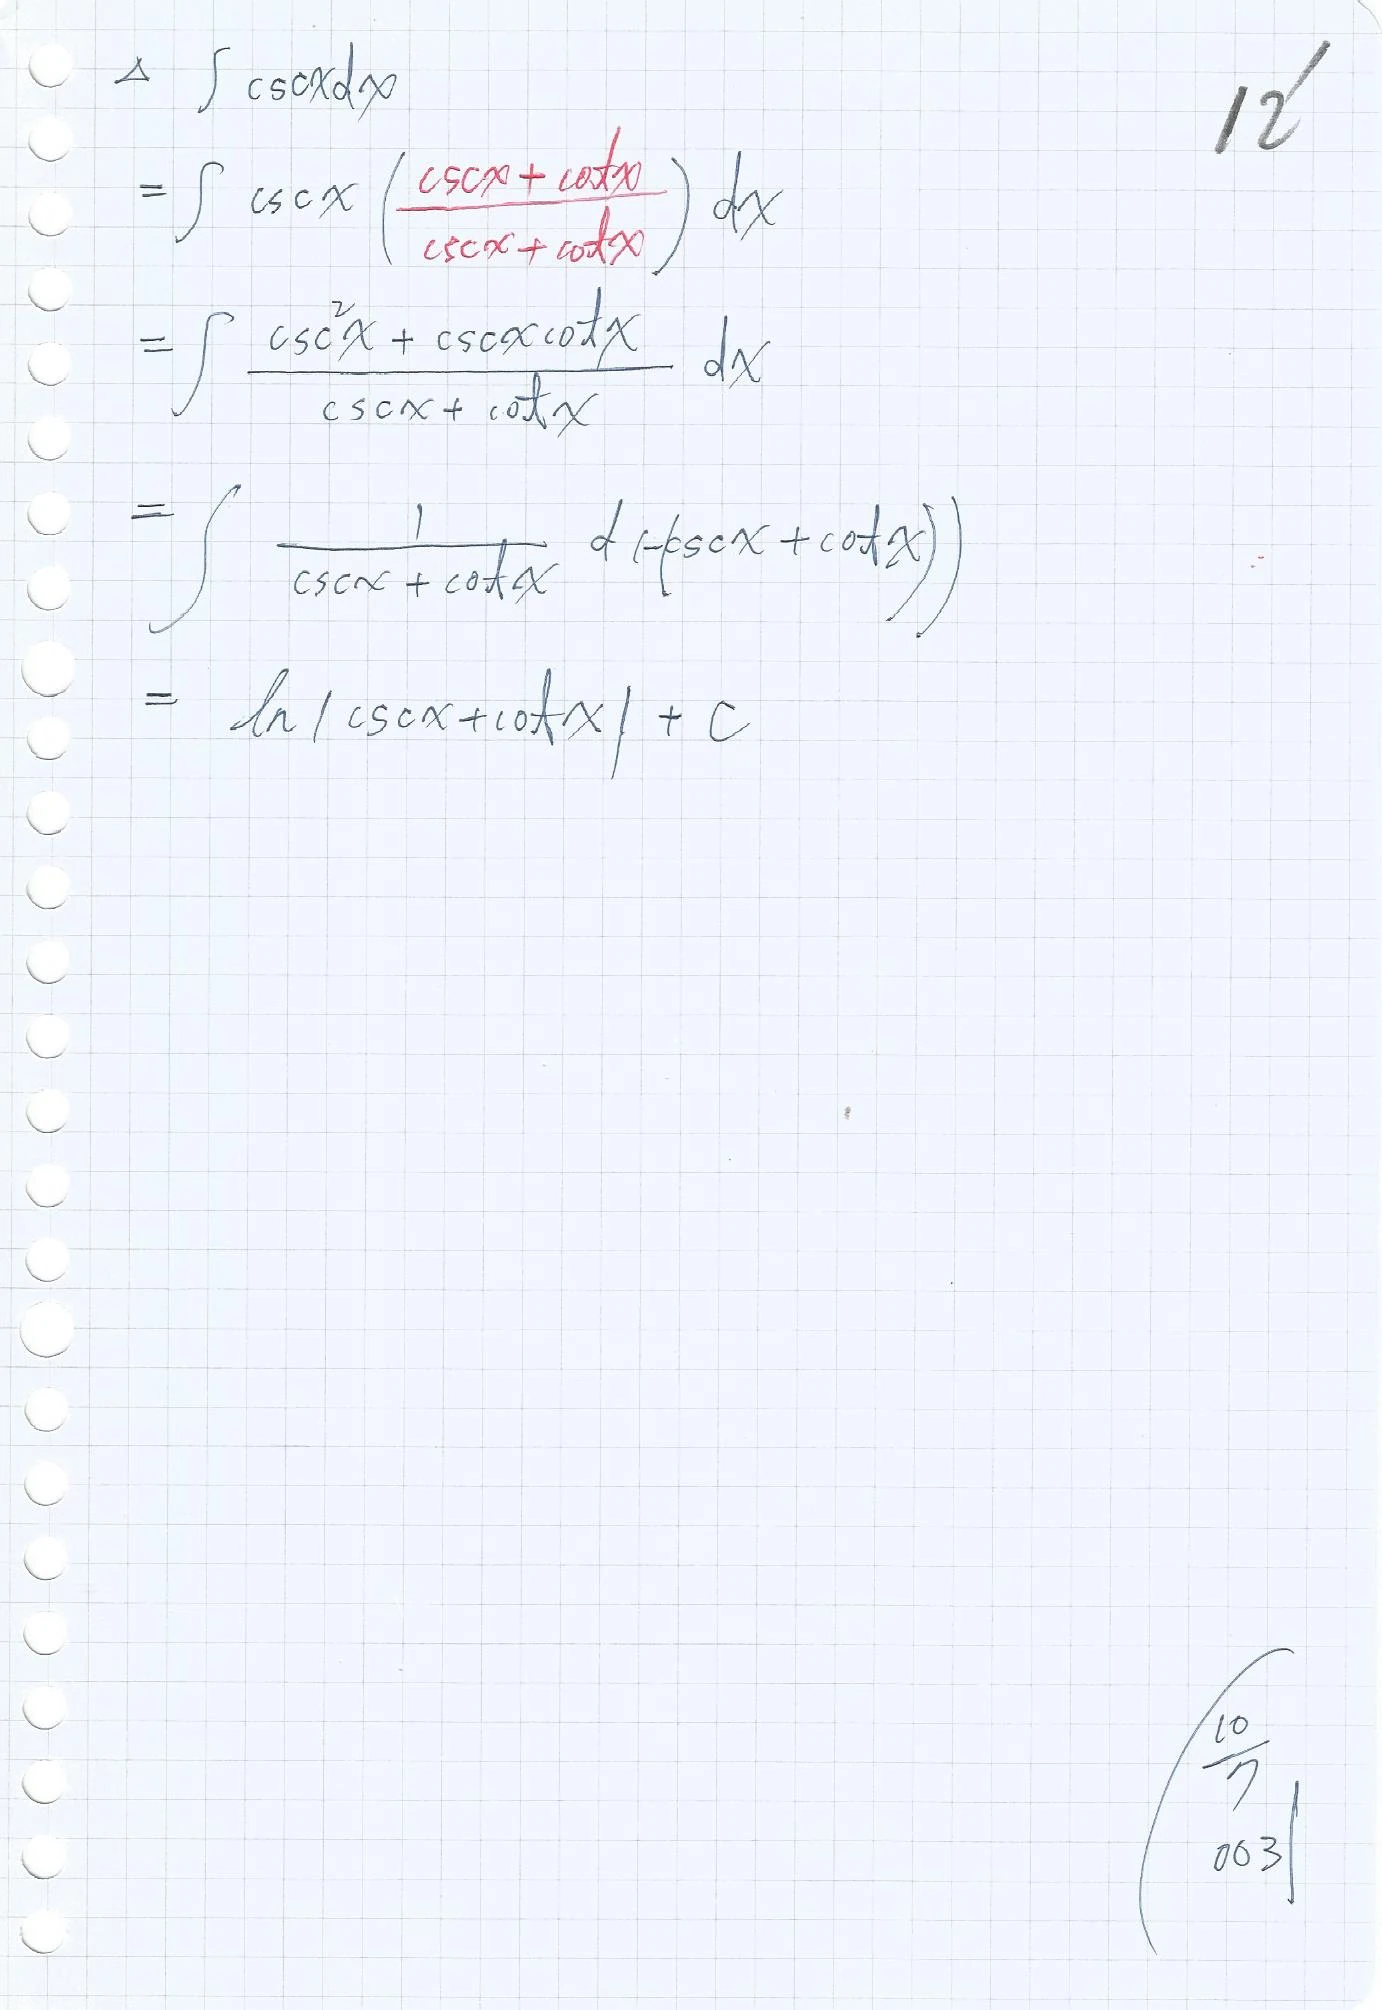 12
△ ∫ cscxdx
= ∫ cscx (cscx + cotx / cscx + cotx) dx
= ∫ csc²x + cscxcotx / cscx + cotx dx
= ∫ 1 / cscx + cotx d(-(cscx + cotx))
= ln|cscx+cotx| + c
10/7
003